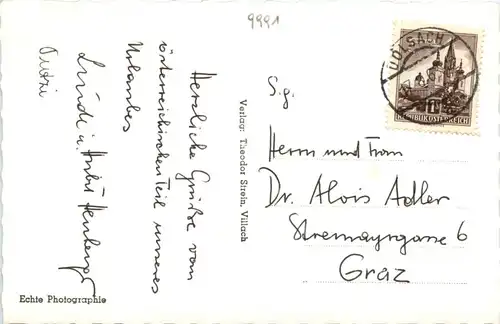 9991
DÖLSACH
REPUBLIK ÖSTERREICH
Herzliche Grüße vom
österreichischen Teil unseres
Urlaubes
u.
Echte Photographie
Verlag: Theodor Strein, Villach
S.g.
Herrn und Frau
Dr. Alois Adler
Stremayrgasse 6
Graz